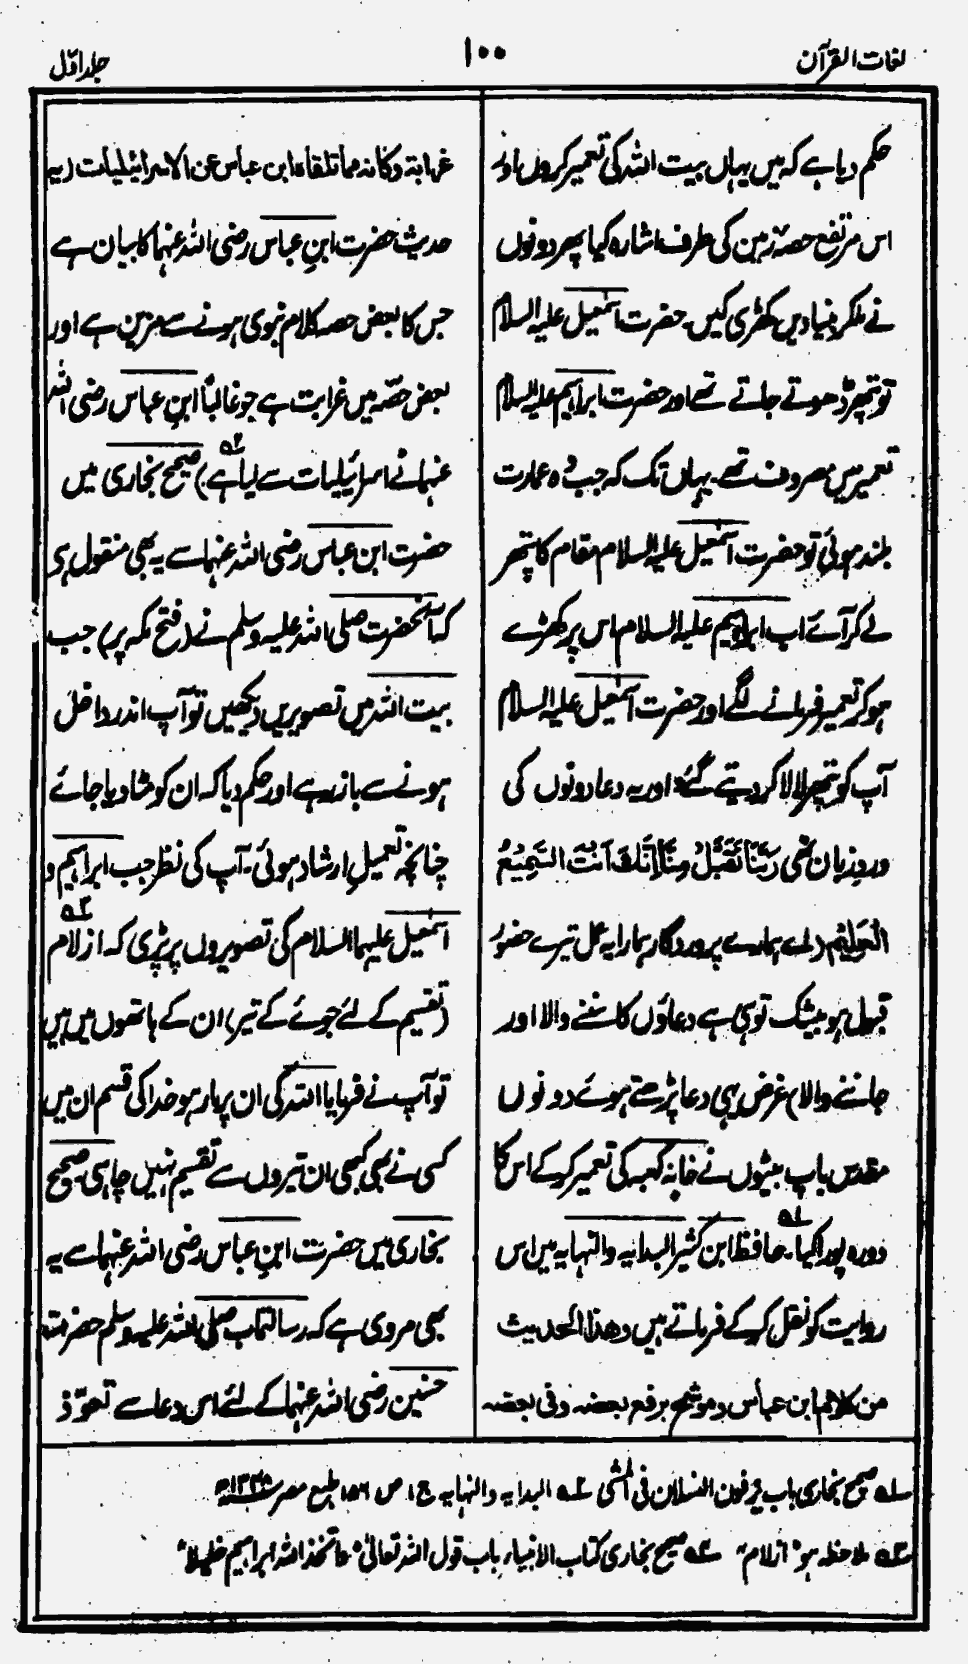 لغات القرآن
۱۰۰
جلد اوّل
حکم دیا ہے کہ میں یہاں بیت اللہ کی تعمیر کروں اور
اس مرتفع حصۂ زمین کی طرف اشارہ کیا پھر دونوں
نے ملکر بنیادیں کھڑی کیں۔ حضرت اسمٰعیل علیہ السلام
تو پتھر ڈھوتے جاتے تھے اور حضرت ابراہیم علیہ السلام
تعمیر میں مصروف تھے۔ یہاں تک کہ جب وہ عمارت
بلند ہوئی تو حضرت اسمٰعیل علیہ السلام مقام کا پتھر
لے کر آئے اب ابراہیم علیہ السلام اس پر کھڑے
ہو کر تعمیر فرمانے لگے اور حضرت اسمٰعیل علیہ السلام
آپ کو پتھر لا لا کر دیتے گئے اور یہ دعا دونوں کی
ورد زبان تھی رَبَّنَا تَقَبَّلْ مِنَّا اِنَّكَ اَنْتَ السَّمِيْعُ
الْعَلِيْمُ (اے ہمارے پروردگار ہمارا یہ عمل تیرے حضور
قبول ہو بیشک تو ہی ہے دعاؤں کا سننے والا اور
جاننے والا) غرض یہی دعا پڑھتے ہوئے دونوں
مقدس باپ بیٹوں نے خانہ کعبہ کی تعمیر کر کے اس کا
دورہ پورا کیا۔ حافظ ابن کثیر البدایہ والنہایہ میں اس
روایت کو نقل کر کے فرماتے ہیں وھذا الحدیث
من کلام ابن عباس وموشح برفع بعضہ وفی بعضہ
غرابۃ وکانہ مما تلقاہ ابن عباس عن الاسرائیلیات (یہ
حدیث حضرت ابنِ عباس رضی اللہ عنہما کا بیان ہے
جس کا بعض حصہ کلام نبوی ہونے سے مزین ہے اور
بعض حصّہ میں غرابت ہے جو غالباً ابنِ عباس رضی اللہ
عنہما نے اسرائیلیات سے لیا ہے) صحیح بخاری میں
حضرت ابن عباس رضی اللہ عنہما سے یہ بھی منقول ہی
کہ آنحضرت صلی اللہ علیہ وسلم نے (فتح مکہ پر) جب
بیت اللہ میں تصویریں دیکھیں تو آپ اندر داخل
ہونے سے باز رہے اور حکم دیا کہ ان کو مٹا دیا جائے
چنانچہ تعمیلِ ارشاد ہوئی۔ آپ کی نظر جب ابراہیم و
اسمٰعیل علیہما السلام کی تصویروں پر پڑی کہ ازلام
(تقسیم کے لئے جوئے کے تیر) ان کے ہاتھوں میں ہیں
تو آپ نے فرمایا اللہ کی ان پر مار ہو خدا کی قسم ان میں
کسی نے بھی کبھی ان تیروں سے تقسیم نہیں چاہی صحیح
بخاری میں حضرت ابنِ عباس رضی اللہ عنہما سے یہ
بھی مروی ہے کہ رسالتمآب صلی اللہ علیہ وسلم حضرت
حسنین رضی اللہ عنہما کے لئے اس دعا سے تعوّذ
لہ صحیح بخاری باب یزفون النسلان فی المشی ۲ہ البدایہ والنہایہ ج۱ ص ۱۵۶ طبع مصر
۳ہ ملاحظہ ہو "ازلام" ۴ہ صحیح بخاری کتاب الانبیاء باب قول اللہ تعالیٰ "واتخذ اللہ ابراہیم خلیلا"